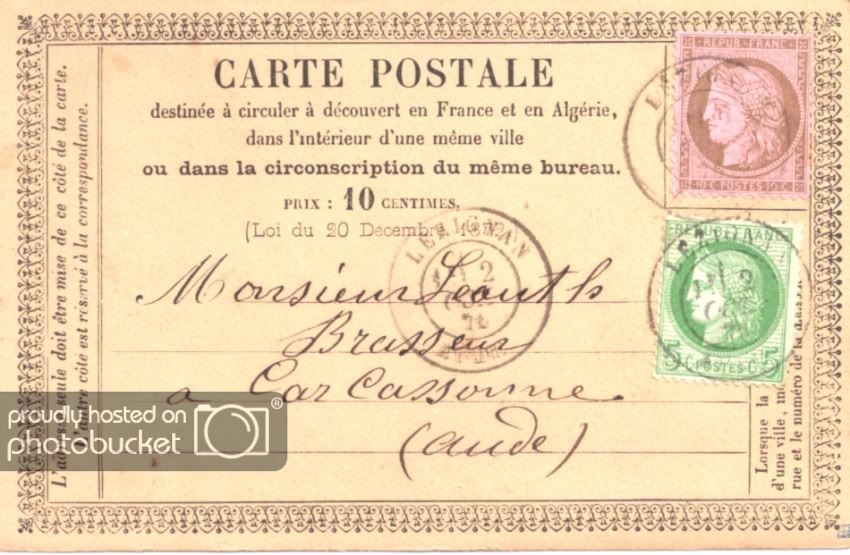 CARTE POSTALE
destinée à circuler à découvert en France et en Algérie,
dans l'intérieur d'une même ville
ou dans la circonscription du même bureau.
PRIX : 10 CENTIMES.
(Loi du 20 Décembre
Monsieur
Brasseur
a Carcassonne
(aude)
REPUB FRANC
10 C POSTES 10 C
REPUB FRANC
5 C POSTES C 5
LEZIGNAN
2
LEZIGNAN
2
LEZIGNAN
L'adresse seule doit être mise de ce côté de la carte.
L'autre côté est réservé à la correspondance.
Lorsque la
d'une ville,
rue et le numéro de la
proudly hosted on
photobucket